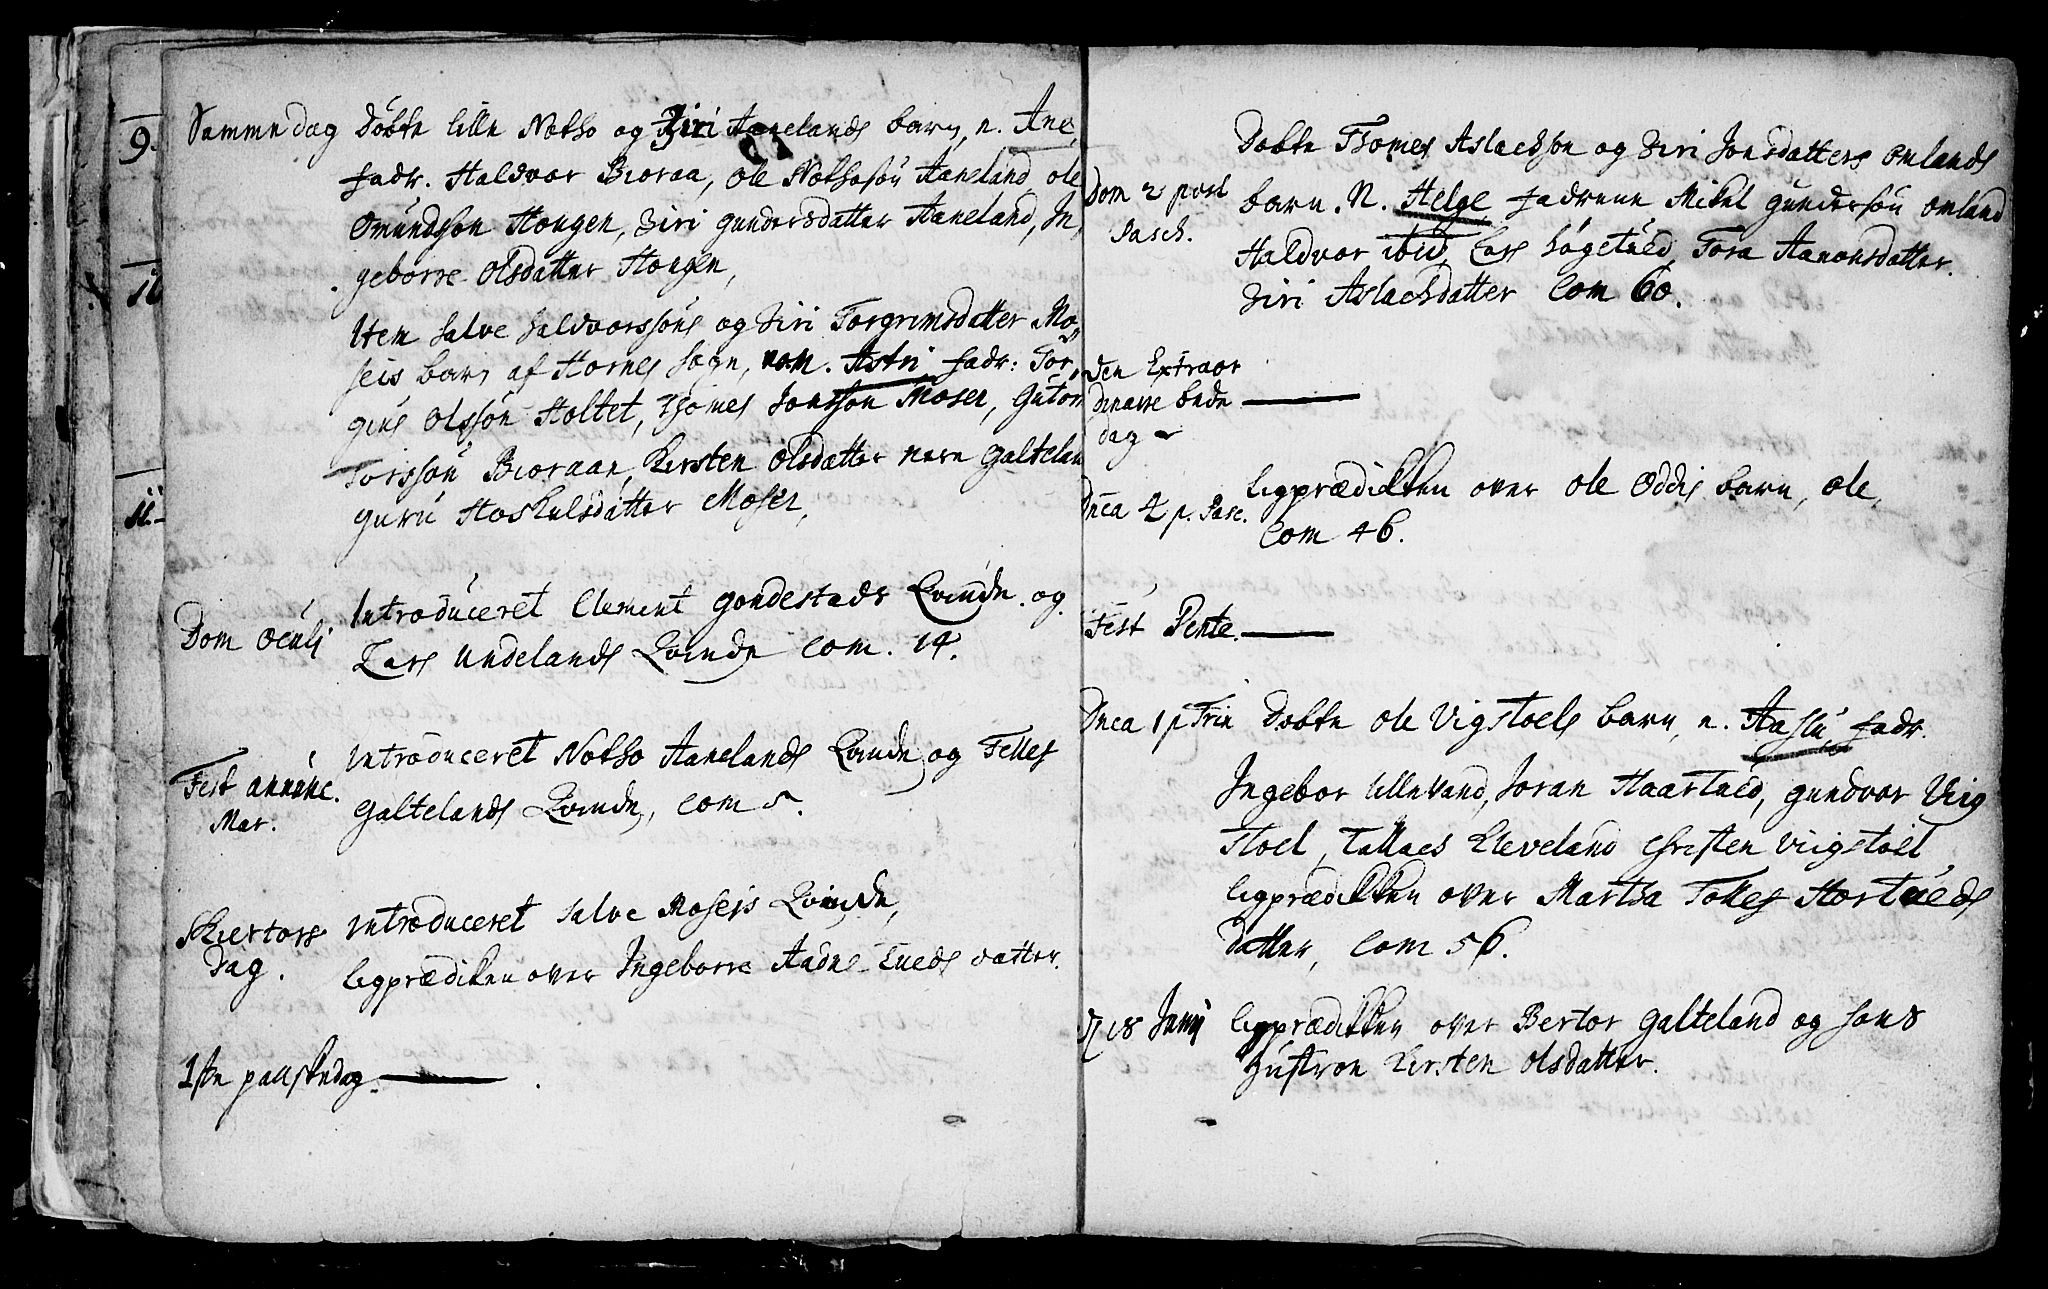 9.
11
11.
Samme dag Döbte lille Notho og Ziri Aanelands barn, n. Ane,
fadr. Haldvor Bioraa, Ole Nothosön Aaneland, ole
Omundson Hougen, Ziri gundersdatter Aaneland, In,
geborre olsdatter Hougen,
Item Salve Haldvorssöns og Ziri Torgrimsdatter Mo,,
seis barn af Hornes sogn, nom. Astri fadr: Tor,,
gius Olssön Holtet, Thomes Jonsson Moser, Gutorm
Torssön Bioraan, Kirsten Olsdatter nere Galteland
guru Hoskulsdatter Moser,
Dom Oculi
Introduceret Clement gondestads Qvinde. og
Lars Undelands Qvinde Com. 14.
Fest annunc.
Mar.
Introduceret Notho Aanelands Qvinde og Telles
Galtelands Qvinde, Com 5.
Skiertors
Dag.
Introduceret Salve Moseis Qvinde,
ligprædiken over Ingeborre Aadne Tueds datter.
1ste paaskedag.
Dom 2 post
Pasch.
Döbte Thomes Aslachson og Ziri Jonsdatters omlands
barn. N. Helge, fadrene Mikel gundersön omland
Haldvor ibid, Lars högetued, Tora Aanonsdatter.
Ziri Aslachsdatter Com 60.
Den Extraor
dinarre bede
dag
Dnca 4 p. Pasc.
ligprædicken over ole Oddis barn, ole,
Com 46.
Fest Pente.
Dnca 1 p Trin Döbte ole Vigstoels barn, n. Aaslu, fadr.
Ingebor lillevand, Joran Haartued, gundvor Viig
stoel, Tallaes Kleveland Christen Viigstoel
ligprædikken over Martha Tolles Hortueds
datter, Com 56.
18 Junij ligprædikken over Bertor Galteland og hans
hustroe Kirsten Olsdatter.